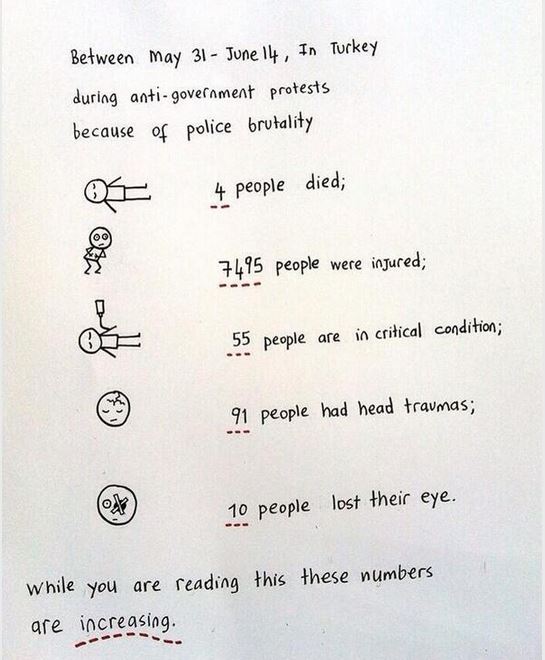 Between May 31 - June 14, In Turkey
during anti-government protests
because of police brutality
4 people died;
7495 people were injured;
55 people are in critical condition;
91 people had head traumas;
10 people lost their eye.
While you are reading this these numbers
are increasing.